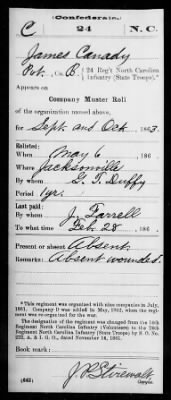 (Confederate.)
C 24 N. C.
James Canady
Pvt., Co. B, 24 Reg't North Carolina
Infantry (State Troops).*
Appears on
Company Muster Roll
of the organization named above,
for Sept. and Oct., 1863.
Enlisted:
When May 6, 186
Where Jacksonville
By whom G. T. Duffy
Period 1 yr.
Last paid:
By whom J. Farrell
To what time Feb. 28, 186
Present or absent Absent.
Remarks: Absent wounded.
*This regiment was organized with nine companies in July,
1861. Company D was added in May, 1862, when the regi-
ment was re-organized for the war.
The designation of this regiment was changed from the 14th
Regiment North Carolina Infantry (Volunteers) to the 24th
Regiment North Carolina Infantry (State Troops) by S. O. No.
222, A. & I. G. O., dated November 14, 1861.
Book mark:
(642)
J. P. Stirewalt
Copyist.